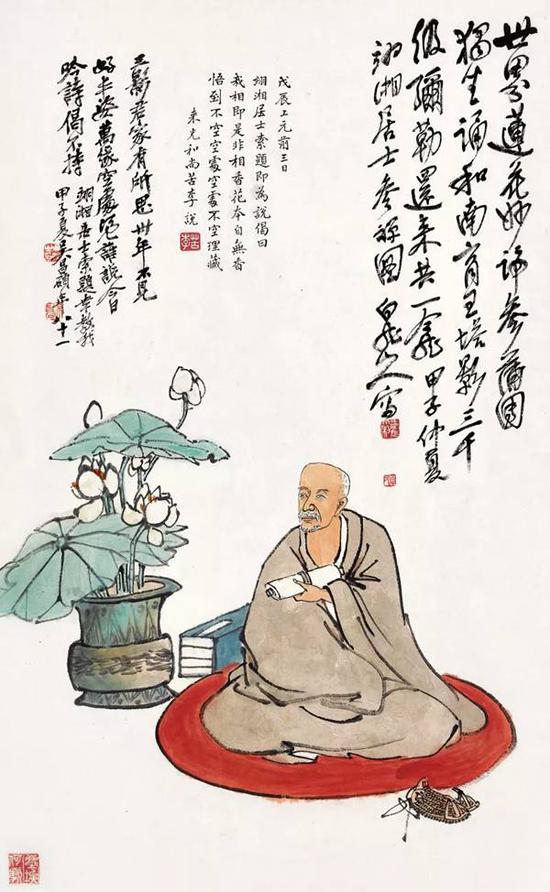 世界蓮花妙諦參蒲團
獨坐誦和南育王塔影三千
級彌勒還來共一龕甲子仲夏
翊湘居士參禪圖 白龍山人寫
戊辰上元前三日
翊湘居士索題即為說偈曰
我相即是非相香花本自無香
悟到不空空處空處不空埋藏
来光和尚苦李說
苦李
三影君家有所思卅年不見
好丰姿萬緣空處從誰說今日
吟詩偈不持
翊湘居士索題幸教我
甲子夏吳昌碩年八十一